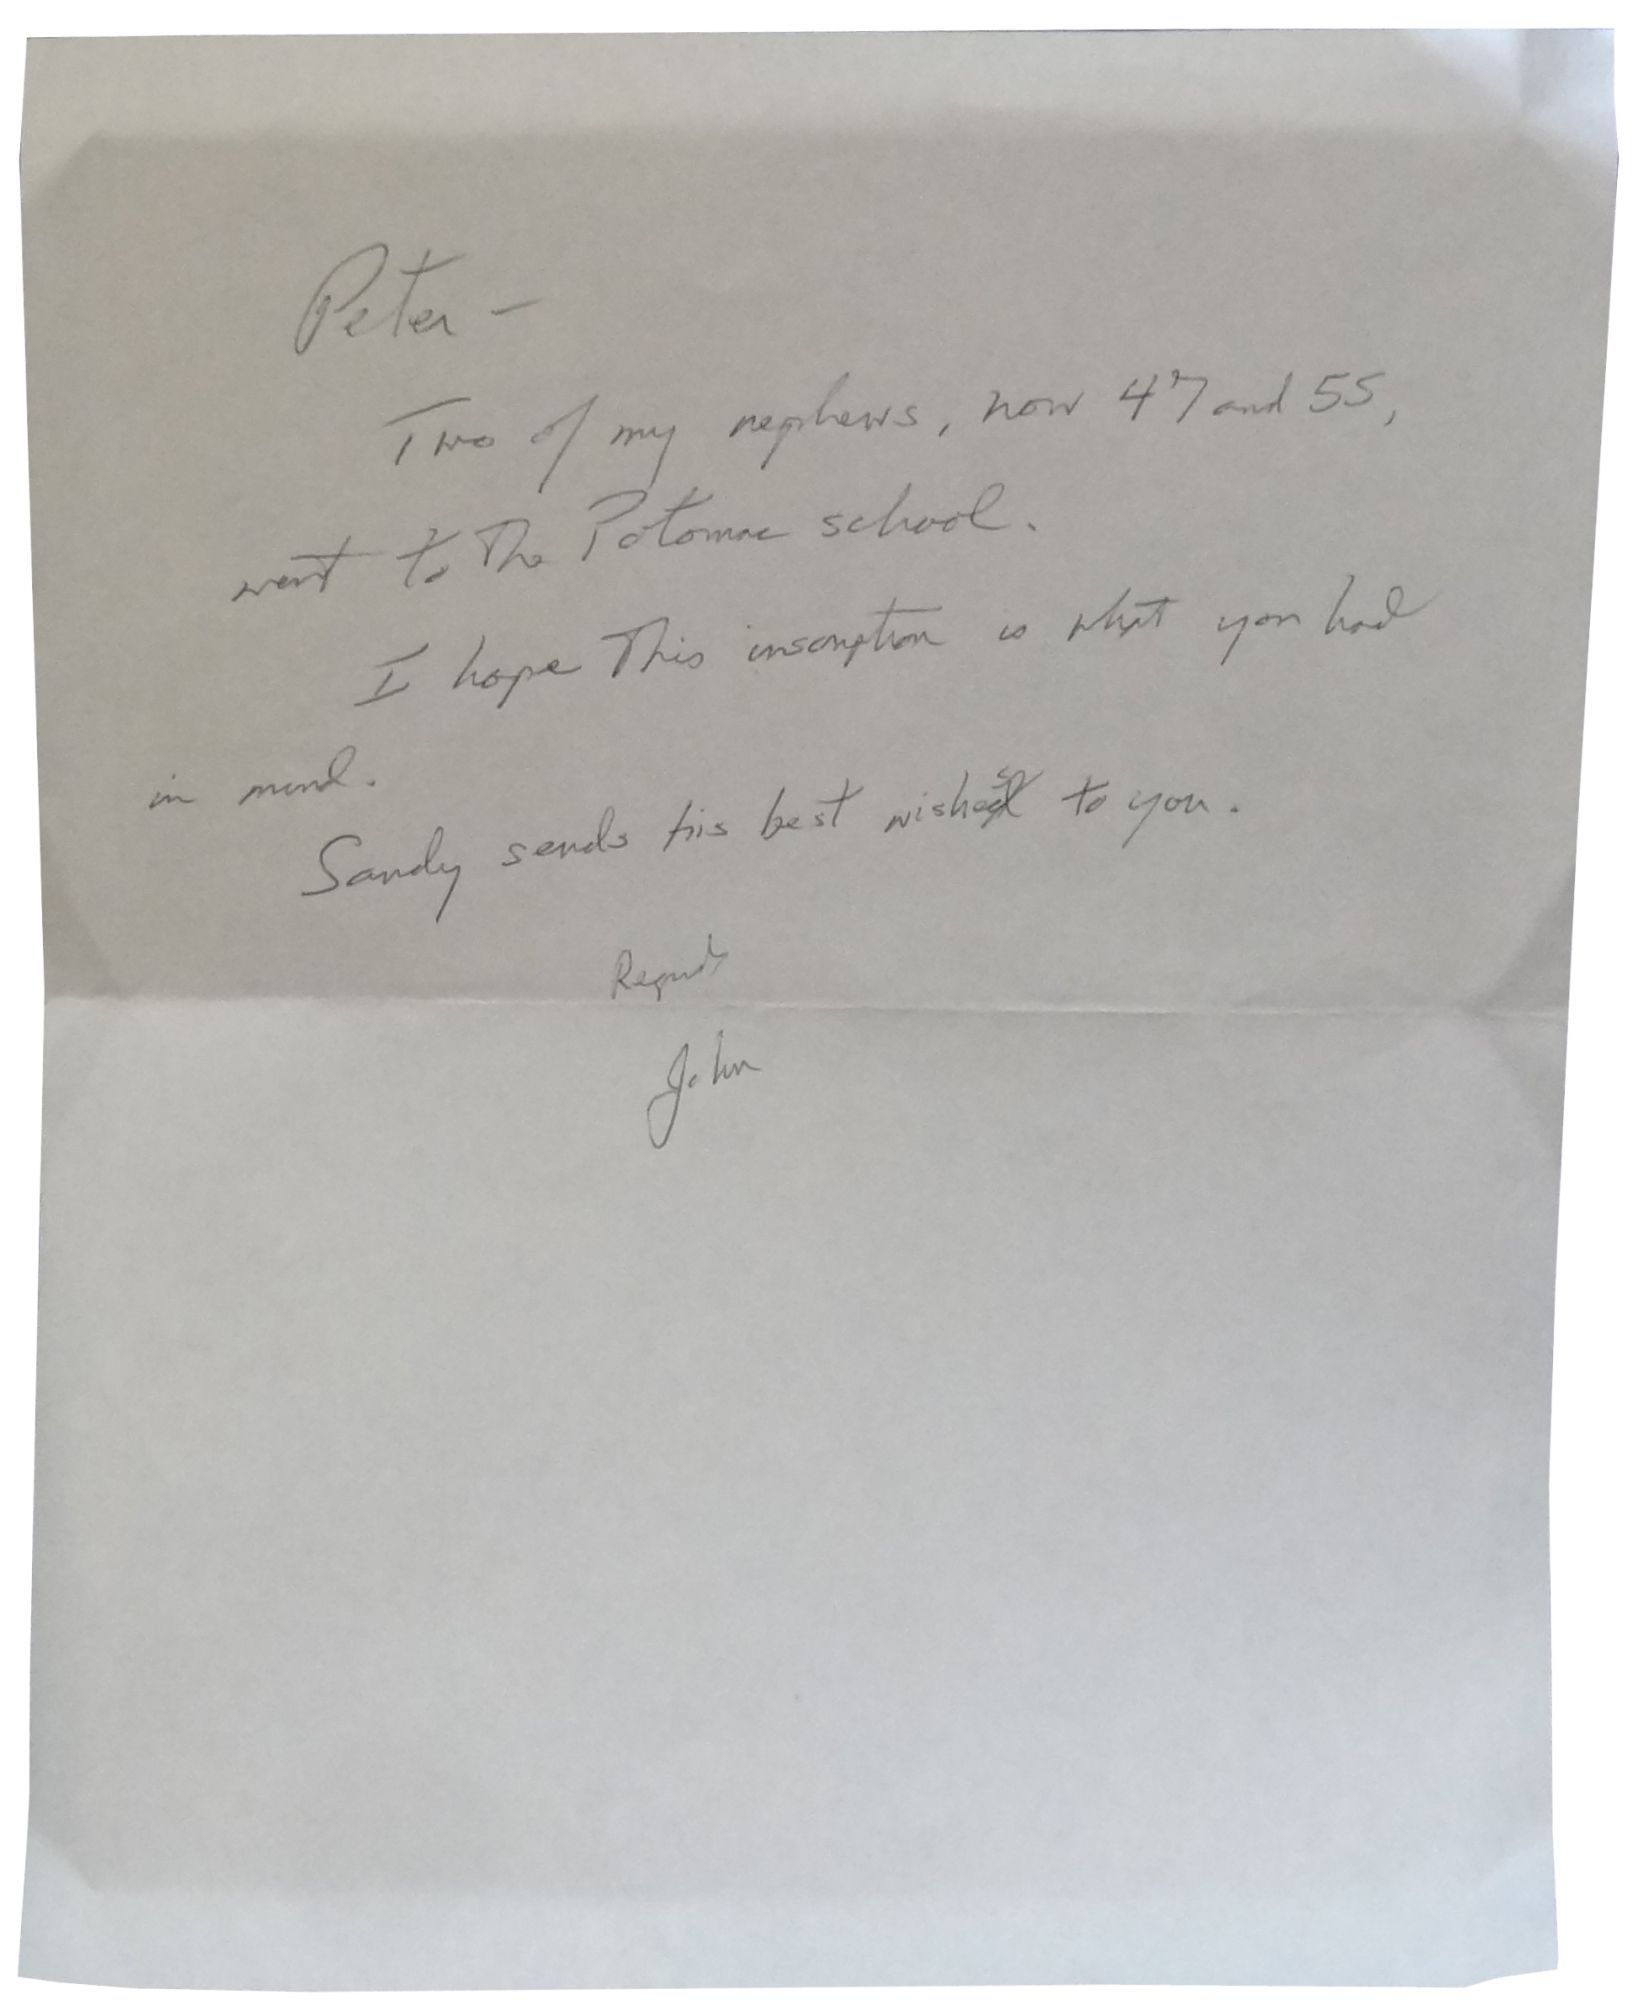 Peter -
Two of my nephews, now 47 and 55,
went to The Potomac school.
I hope This inscription is what you had
in mind.
Sandy sends his best wishes to you.
Regards
John